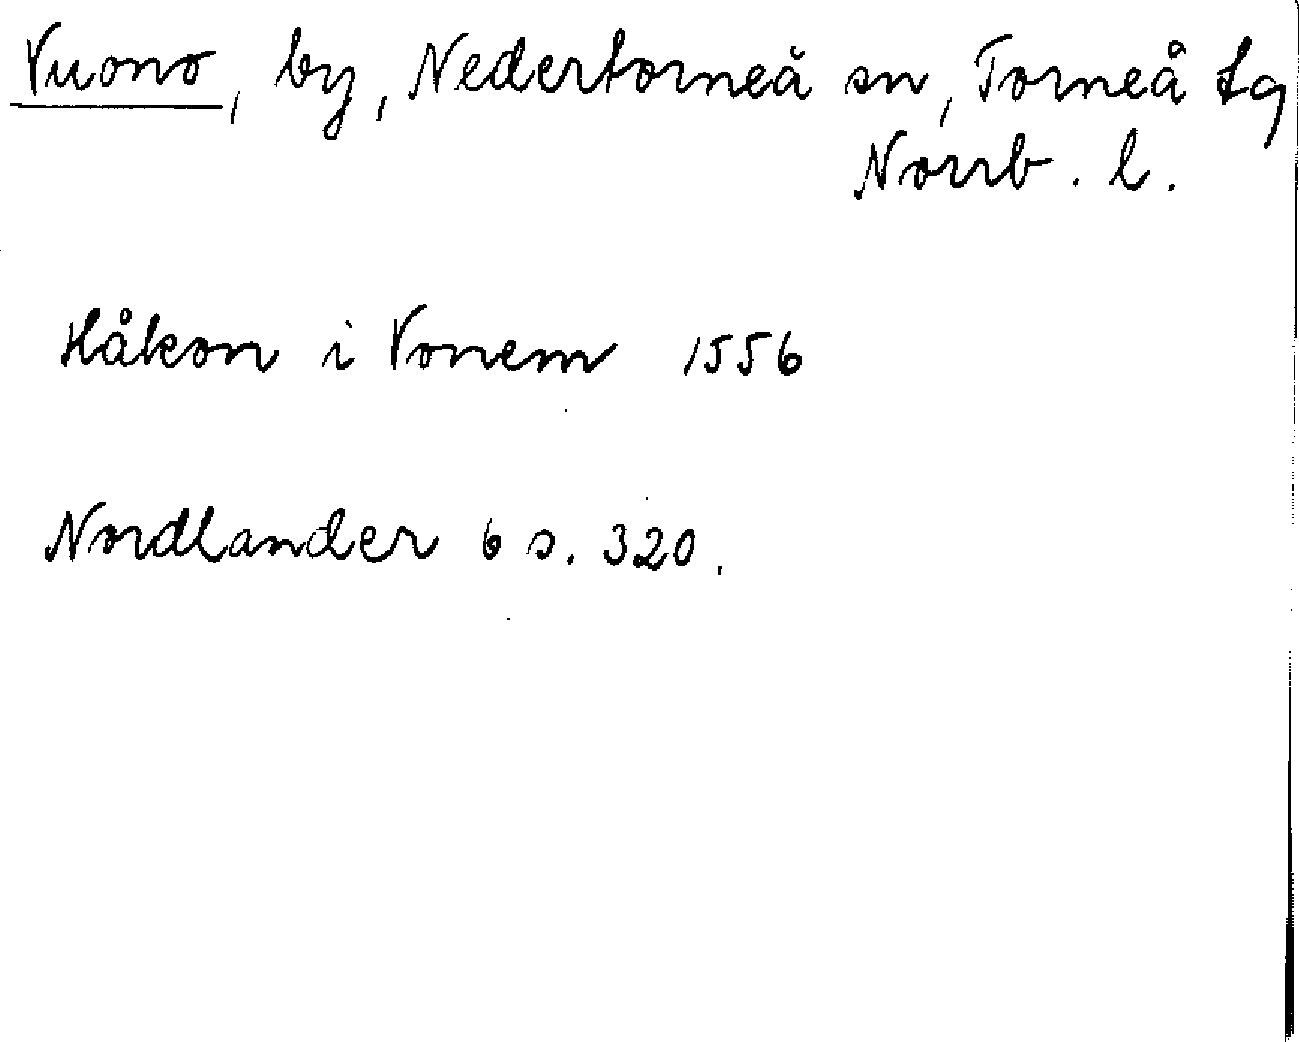 Vuono, by, Nedertorneå sn, Torneå tg
Norrb. l.
Håkon i Vonem 1556
Nordlander 6 s. 320.